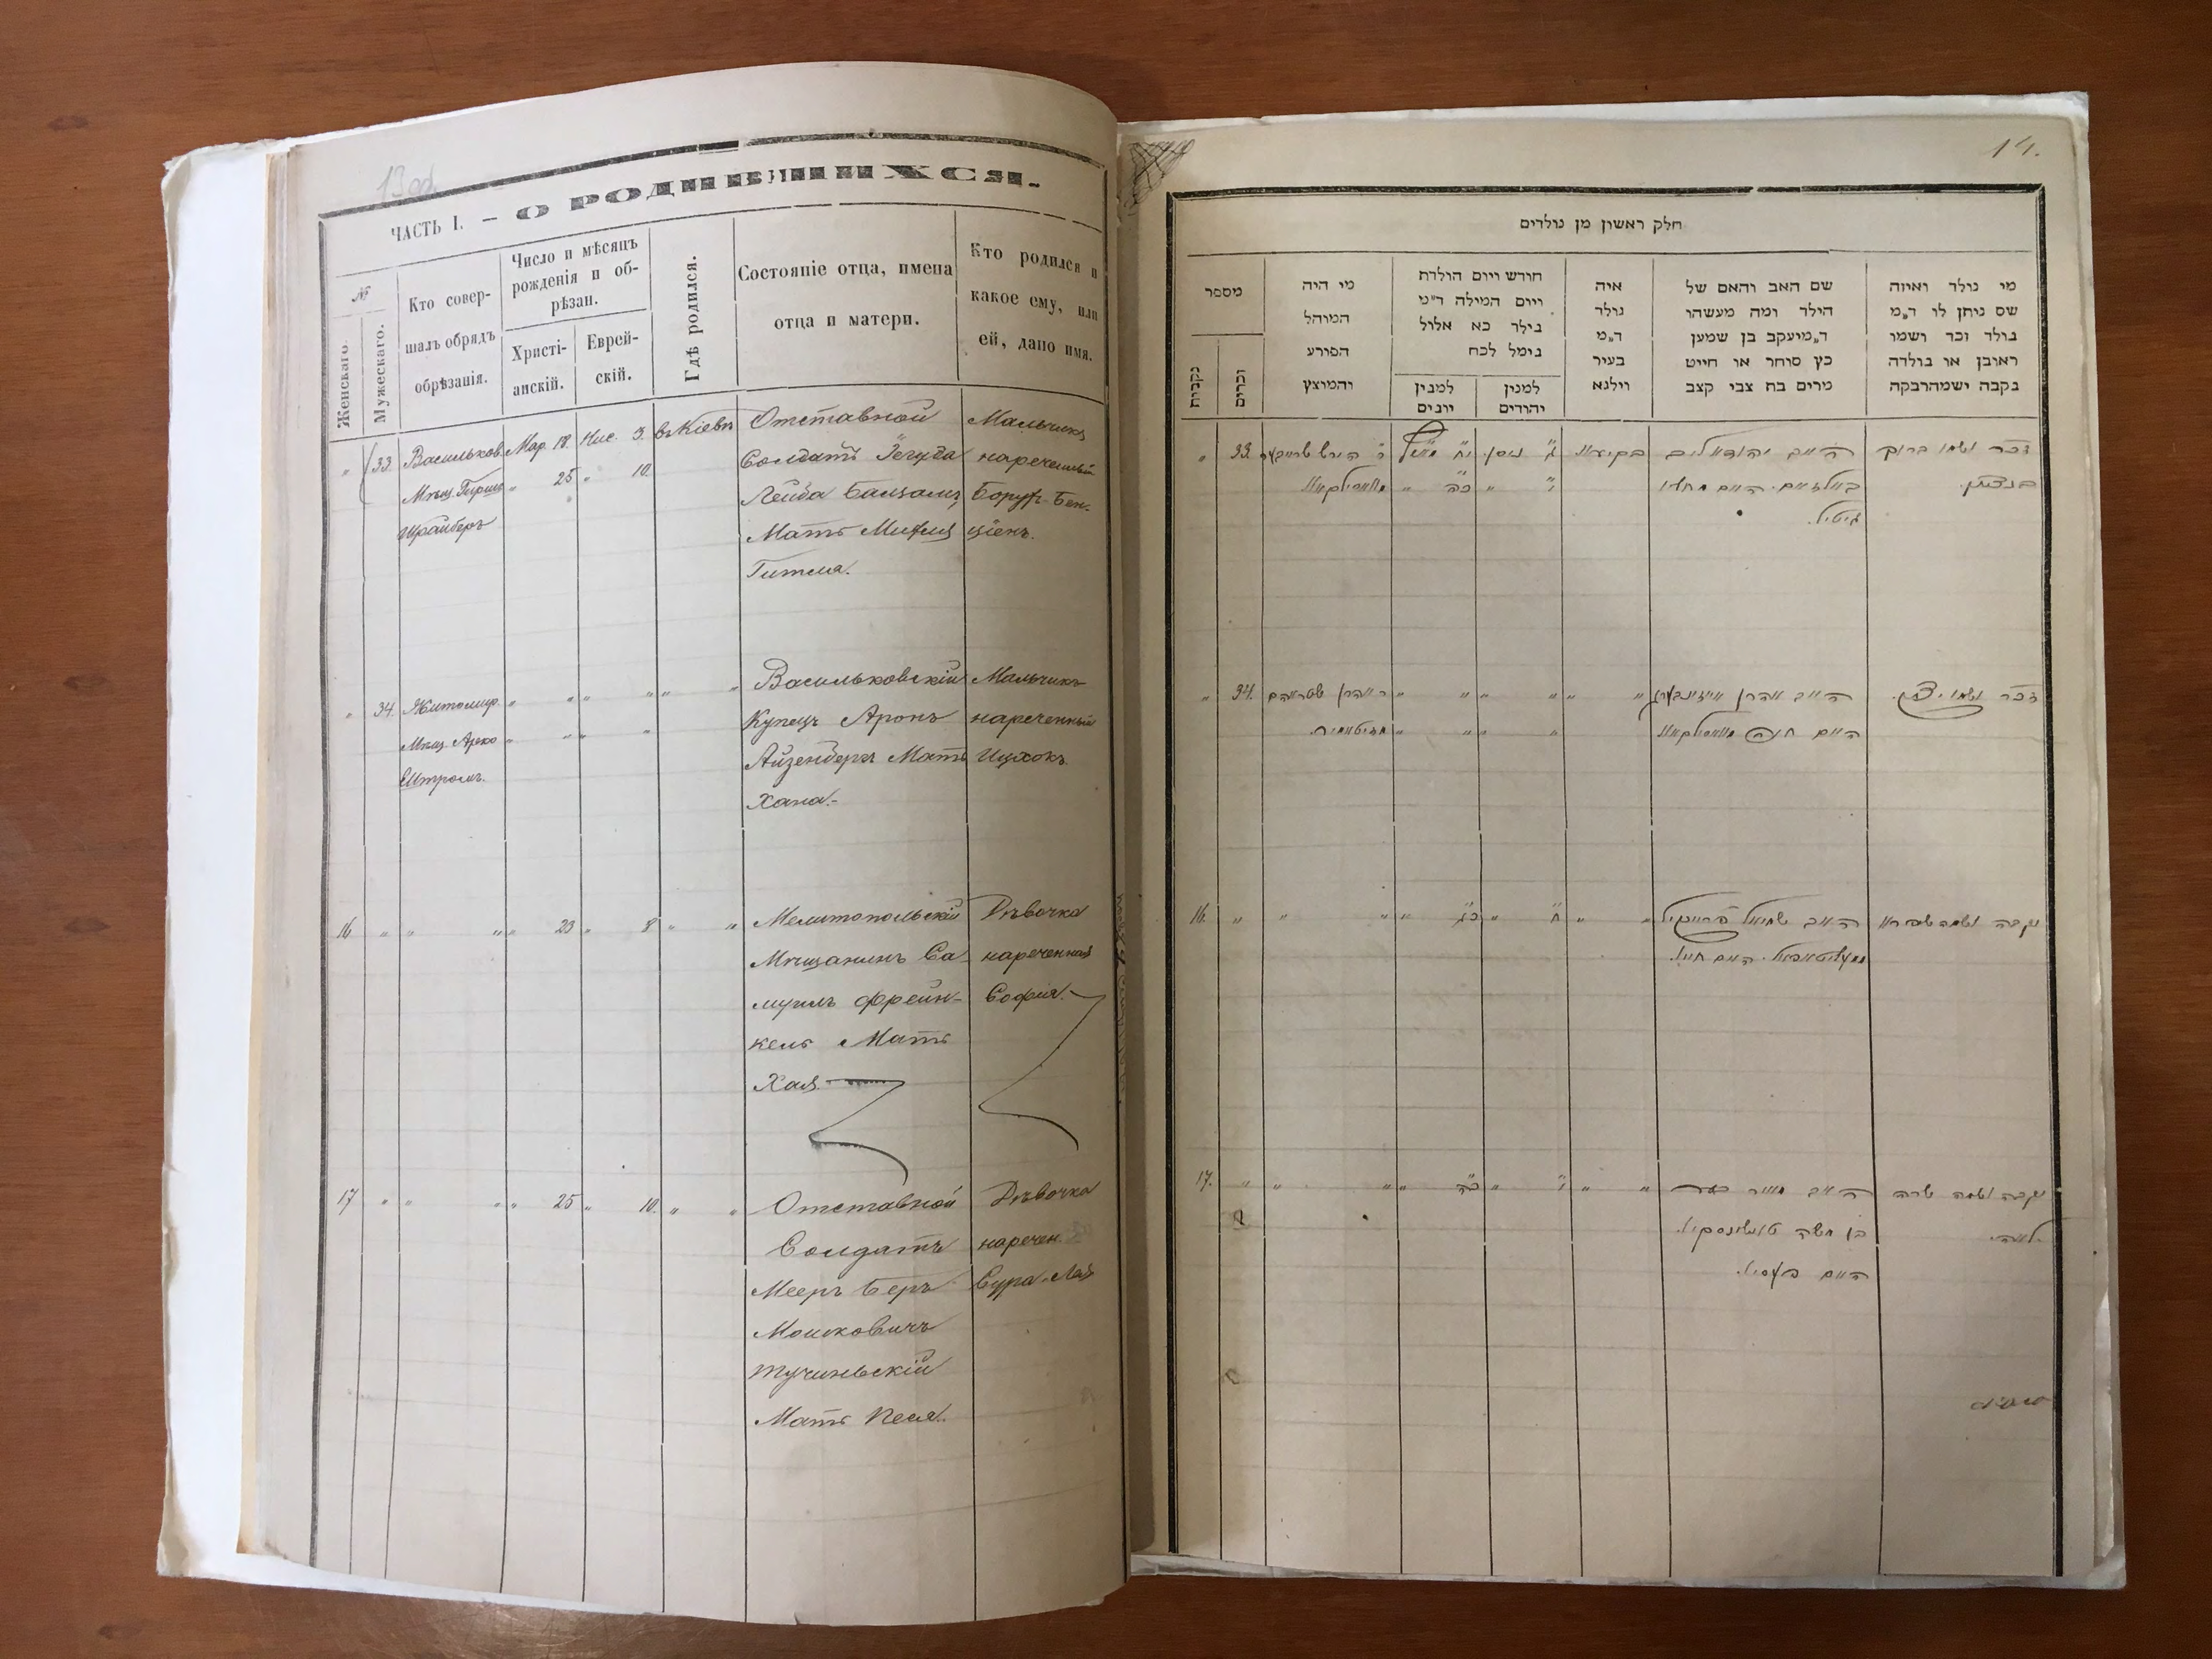 13 об.
ЧАСТЬ I. – О РОДИВШИХСЯ.
№
Женскаго.
Мужескаго.
Кто совер-
шалъ обрядъ
обрѣзанія.
Число и мѣсяцъ
рожденія и об-
рѣзан.
Христі-
анскій.
Еврей-
скій.
Гдѣ родился.
Состояніе отца, имена
отца и матери.
Кто родился и
какое ему, или
ей, дано имя.
" 33. Васильков. Мар. 18. Нис. 3. въ Кіевѣ Отставной Мальчикъ
Мѣщ. Гершъ " 25 " 10. Солдатъ Іегуда нареченный
Шрайберъ Лейба Балзамъ, Борухъ-Бен-
Мать Михля ціенъ.
Гитля.
" 34. Житомир. " " " " " " Васильковскій Мальчикъ
Мѣщ. Арко " " " " Купецъ Аронъ нареченный
Штромъ. Айзенбергъ Мать Ицхокъ.
Хана.-
16 " " " " 23 " 8 " " Мелитопольскій Дѣвочка
Мѣщанинъ Са- нареченная
муилъ Френ- Софія.
кель Мать
Хая.
17 " " " " 25 " 10. " " Отставной Дѣвочка
Солдатъ наречен.
Мееръ Беръ Сура-Лея
Мошковичъ
Тучинскій
Мать Песя.
14.
חלק ראשון מן נולדים
מי נולד ואיזה
שם ניתן לו ד"מ
נולד זכר ושמו
ראובן או נולדה
נקבה ישמהרבקה
שם האב והאם של
הילד ומה מעשהו
ד"מיעקב בן שמען
כץ סוחר או חייט
מרים בת צבי קצב
איה
נולד
ד"מ
בעיר
ווילנא
חודש ויום הולדת
ויום המילה ד"מ
נילד כא אלול
נימל לכח
למנין
יהודים
למנין
יונים
מי היה
המוהל
הפורע
והמוצץ
מספר
זכרים
נקבות
זכר ושמו ברוך האב יהודא ליב בקיעוו ג" ניסן י"ח מערץ ר' הירש שרייבער 33. "
בנציון. באלזאם. האם מחליו י" " כ"ה " וואסילקאוו
גיטיל.
זכר ושמו יצחק. האב אהרן אייזענבערג " " " " " " ר' אהרן שטראם 34. "
האם חנה וואסילקאוו " " " " זיטאמיר.
נקבה ושמה האב שמואל פרענקיל " " ח" " כ"ג " " " " 16.
מעליטאפאל. האם חיה.
נקבה ושמה שרה האב מאיר בער " " י" " כ"ה " " " " 17.
לאה. בן משה טוטשינסקי.
האם פעסיל.